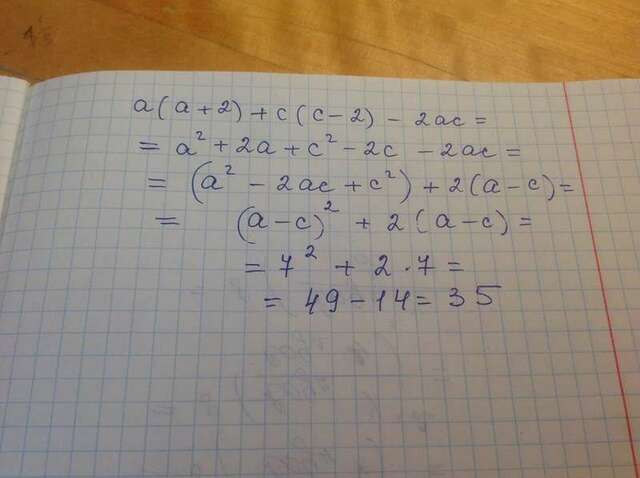 a(a+2)+c(c-2)-2ac=
=a²+2a+c²-2c-2ac=
=(a²-2ac+c²)+2(a-c)=
=(a-c)²+2(a-c)=
=7²+2·7=
=49-14=35